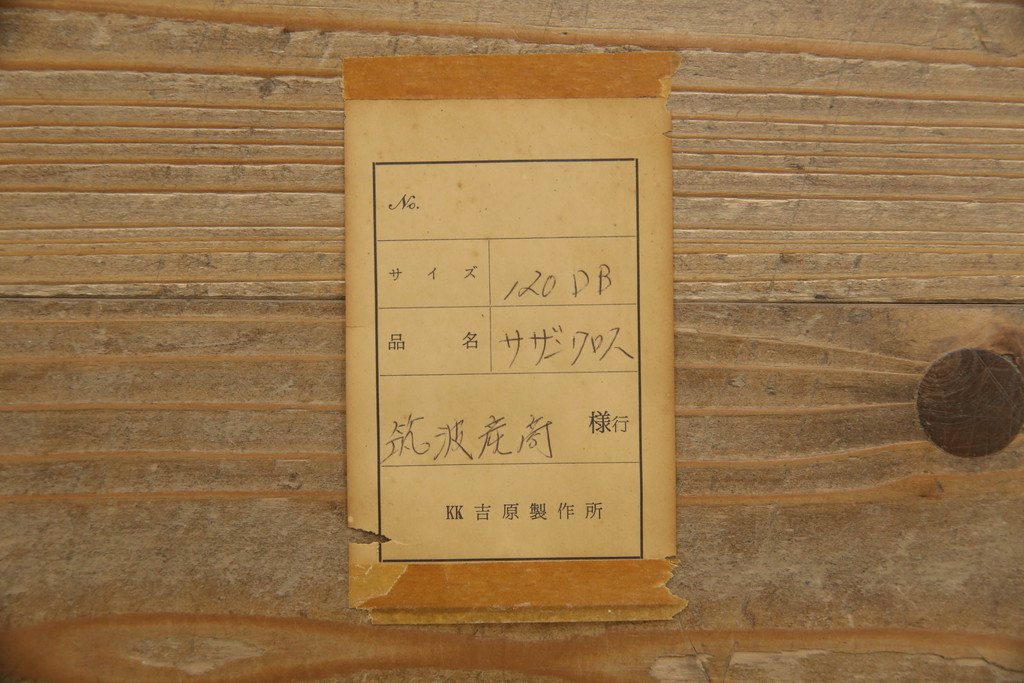 No.
サイズ 120 DB
品名 サザンクロス
筑波産商 様行
KK 吉原製作所